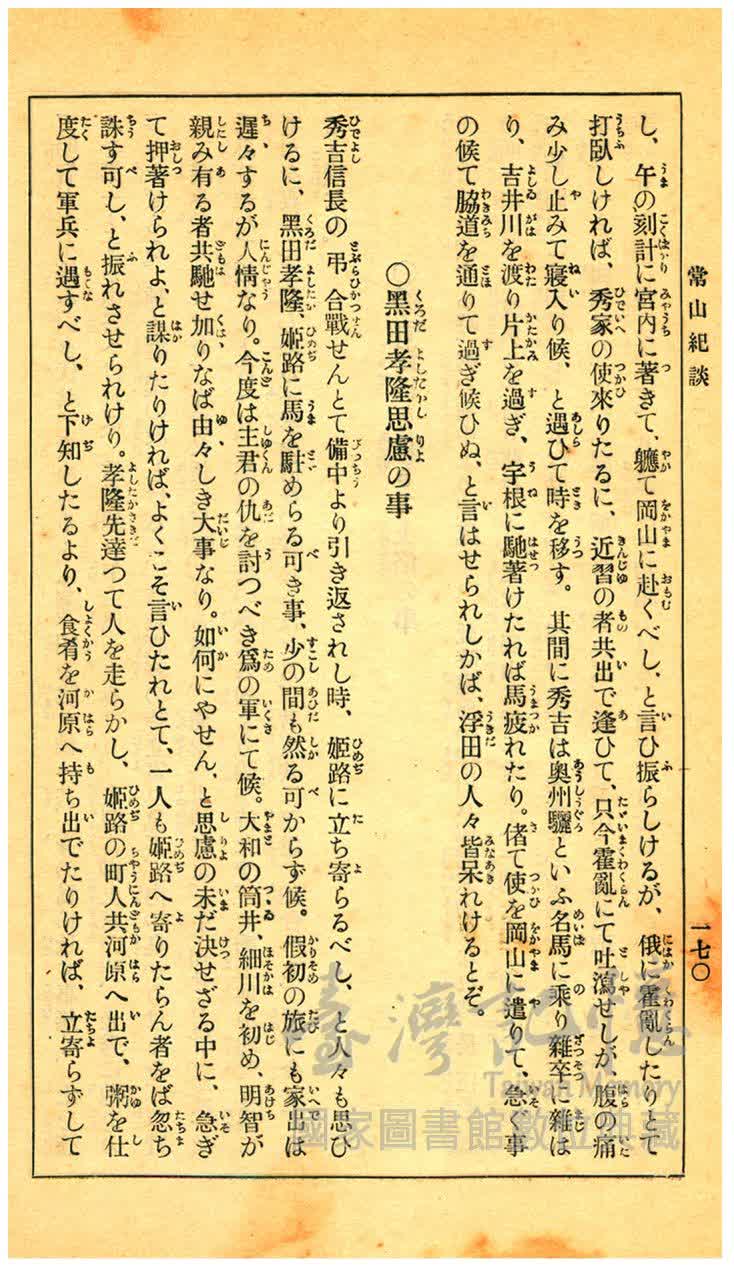 常山紀談
一七〇
し、午の刻計に宮内に著きて、軈て岡山に赴くべし、と言ひ振らしけるが、俄に霍亂したりとて
打臥しければ、秀家の使來りたるに、近習の者共出で逢ひて、只今霍亂にて吐瀉せしが、腹の痛
み少し止みて寢入り候、と遇ひて時を移す。其間に秀吉は奧州驪といふ名馬に乘り雜卒に雜は
り、吉井川を渡り片上を過ぎ、宇根に馳著けたれば馬疲れたり。偖て使を岡山に遣りて、急ぐ事
の候て脇道を通りて過ぎ候ひぬ、と言はせられしかば、浮田の人々皆呆れけるとぞ。
〇黑田孝隆思慮の事
秀吉信長の弔合戰せんとて備中より引き返されし時、姫路に立ち寄らるべし、と人々も思ひ
けるに、黑田孝隆、姫路に馬を駐めらる可き事、少の間も然る可からず候。假初の旅にも家出は
遲々するが人情なり。今度は主君の仇を討つべき爲の軍にて候。大和の筒井、細川を初め、明智が
親み有る者共馳せ加りなば由々しき大事なり。如何にやせん、と思慮の未だ決せざる中に、急ぎ
て押著けられよ、と謀りたりければ、よくこそ言ひたれとて、一人も姫路へ寄りたらん者をば忽ち
誅す可し、と振れさせられけり。孝隆先達つて人を走らかし、姫路の町人共河原へ出で、粥を仕
度して軍兵に遇すべし、と下知したるより、食肴を河原へ持ち出でたりければ、立寄らずして
臺灣記憶
Taiwan Memory
國家圖書館數位典藏